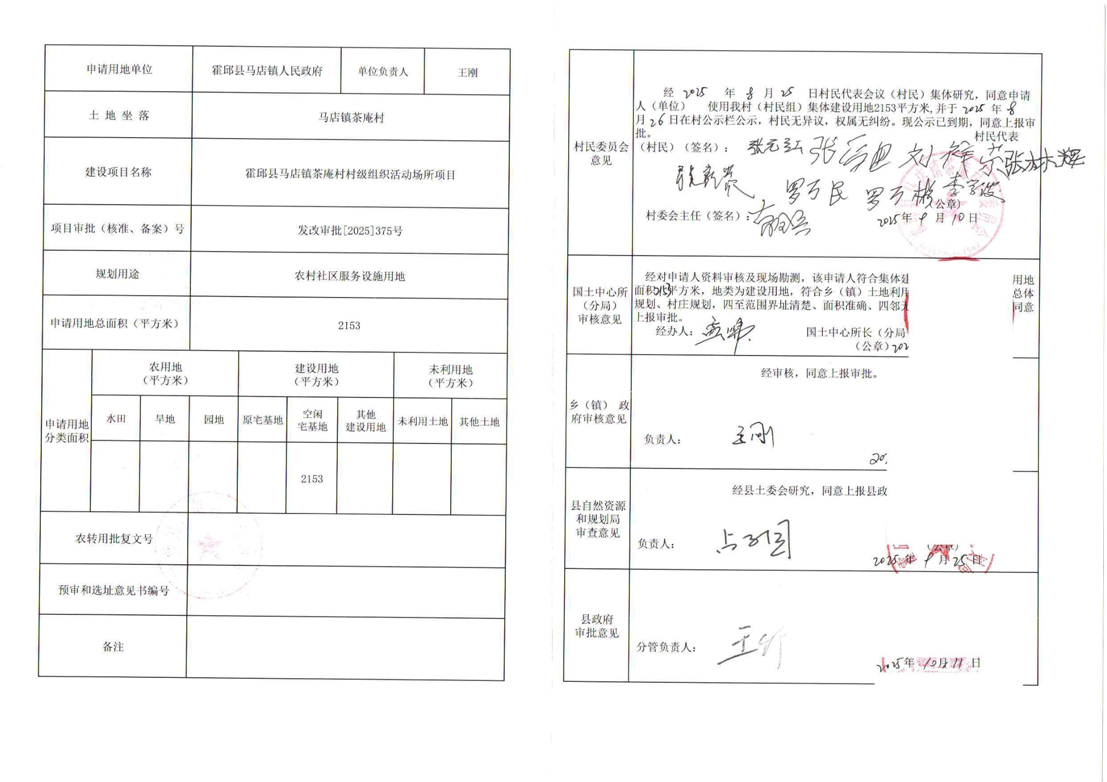 申请用地单位 霍邱县马店镇人民政府 单位负责人 王刚
土地坐落 马店镇茶庵村
建设项目名称 霍邱县马店镇茶庵村村级组织活动场所项目
项目审批(核准、备案)号 发改审批[2025]375号
规划用途 农村社区服务设施用地
申请用地总面积(平方米) 2153
申请用地
分类面积
农用地
(平方米)
建设用地
(平方米)
未利用地
(平方米)
水田 旱地 园地 原宅基地 空闲宅基地 其他建设用地 未利用土地 其他土地
2153
农转用批复文号
预审和选址意见书编号
备注
村民委员会
意见
经 2025 年 8 月 25 日村民代表会议(村民)集体研究,同意申请
人(单位) 使用我村(村民组)集体建设用地2153平方米,并于 2025 年 8
月 26 日在村公示栏公示,村民无异议,权属无纠纷。现公示已到期,同意上报审
批。 村民代表
(村民)(签名):
罗万民
(公章)
村委会主任(签名): 2025年 9 月 10 日
国土中心所
(分局)
审核意见
经对申请人资料审核及现场勘测,该申请人符合集体建 用地
面积2153平方米,地类为建设用地,符合乡(镇)土地利用 总体
规划、村庄规划,四至范围界址清楚、面积准确、四邻无 同意
上报审批。
经办人: 国土中心所长(分局
(公章) 202
乡(镇)政
府审核意见
经审核,同意上报审批。
负责人: 王刚
20
县自然资源
和规划局
审查意见
经县土委会研究,同意上报县政
负责人:
2025 年 9 月 25 日
县政府
审批意见
分管负责人:
2025年 10月 11 日